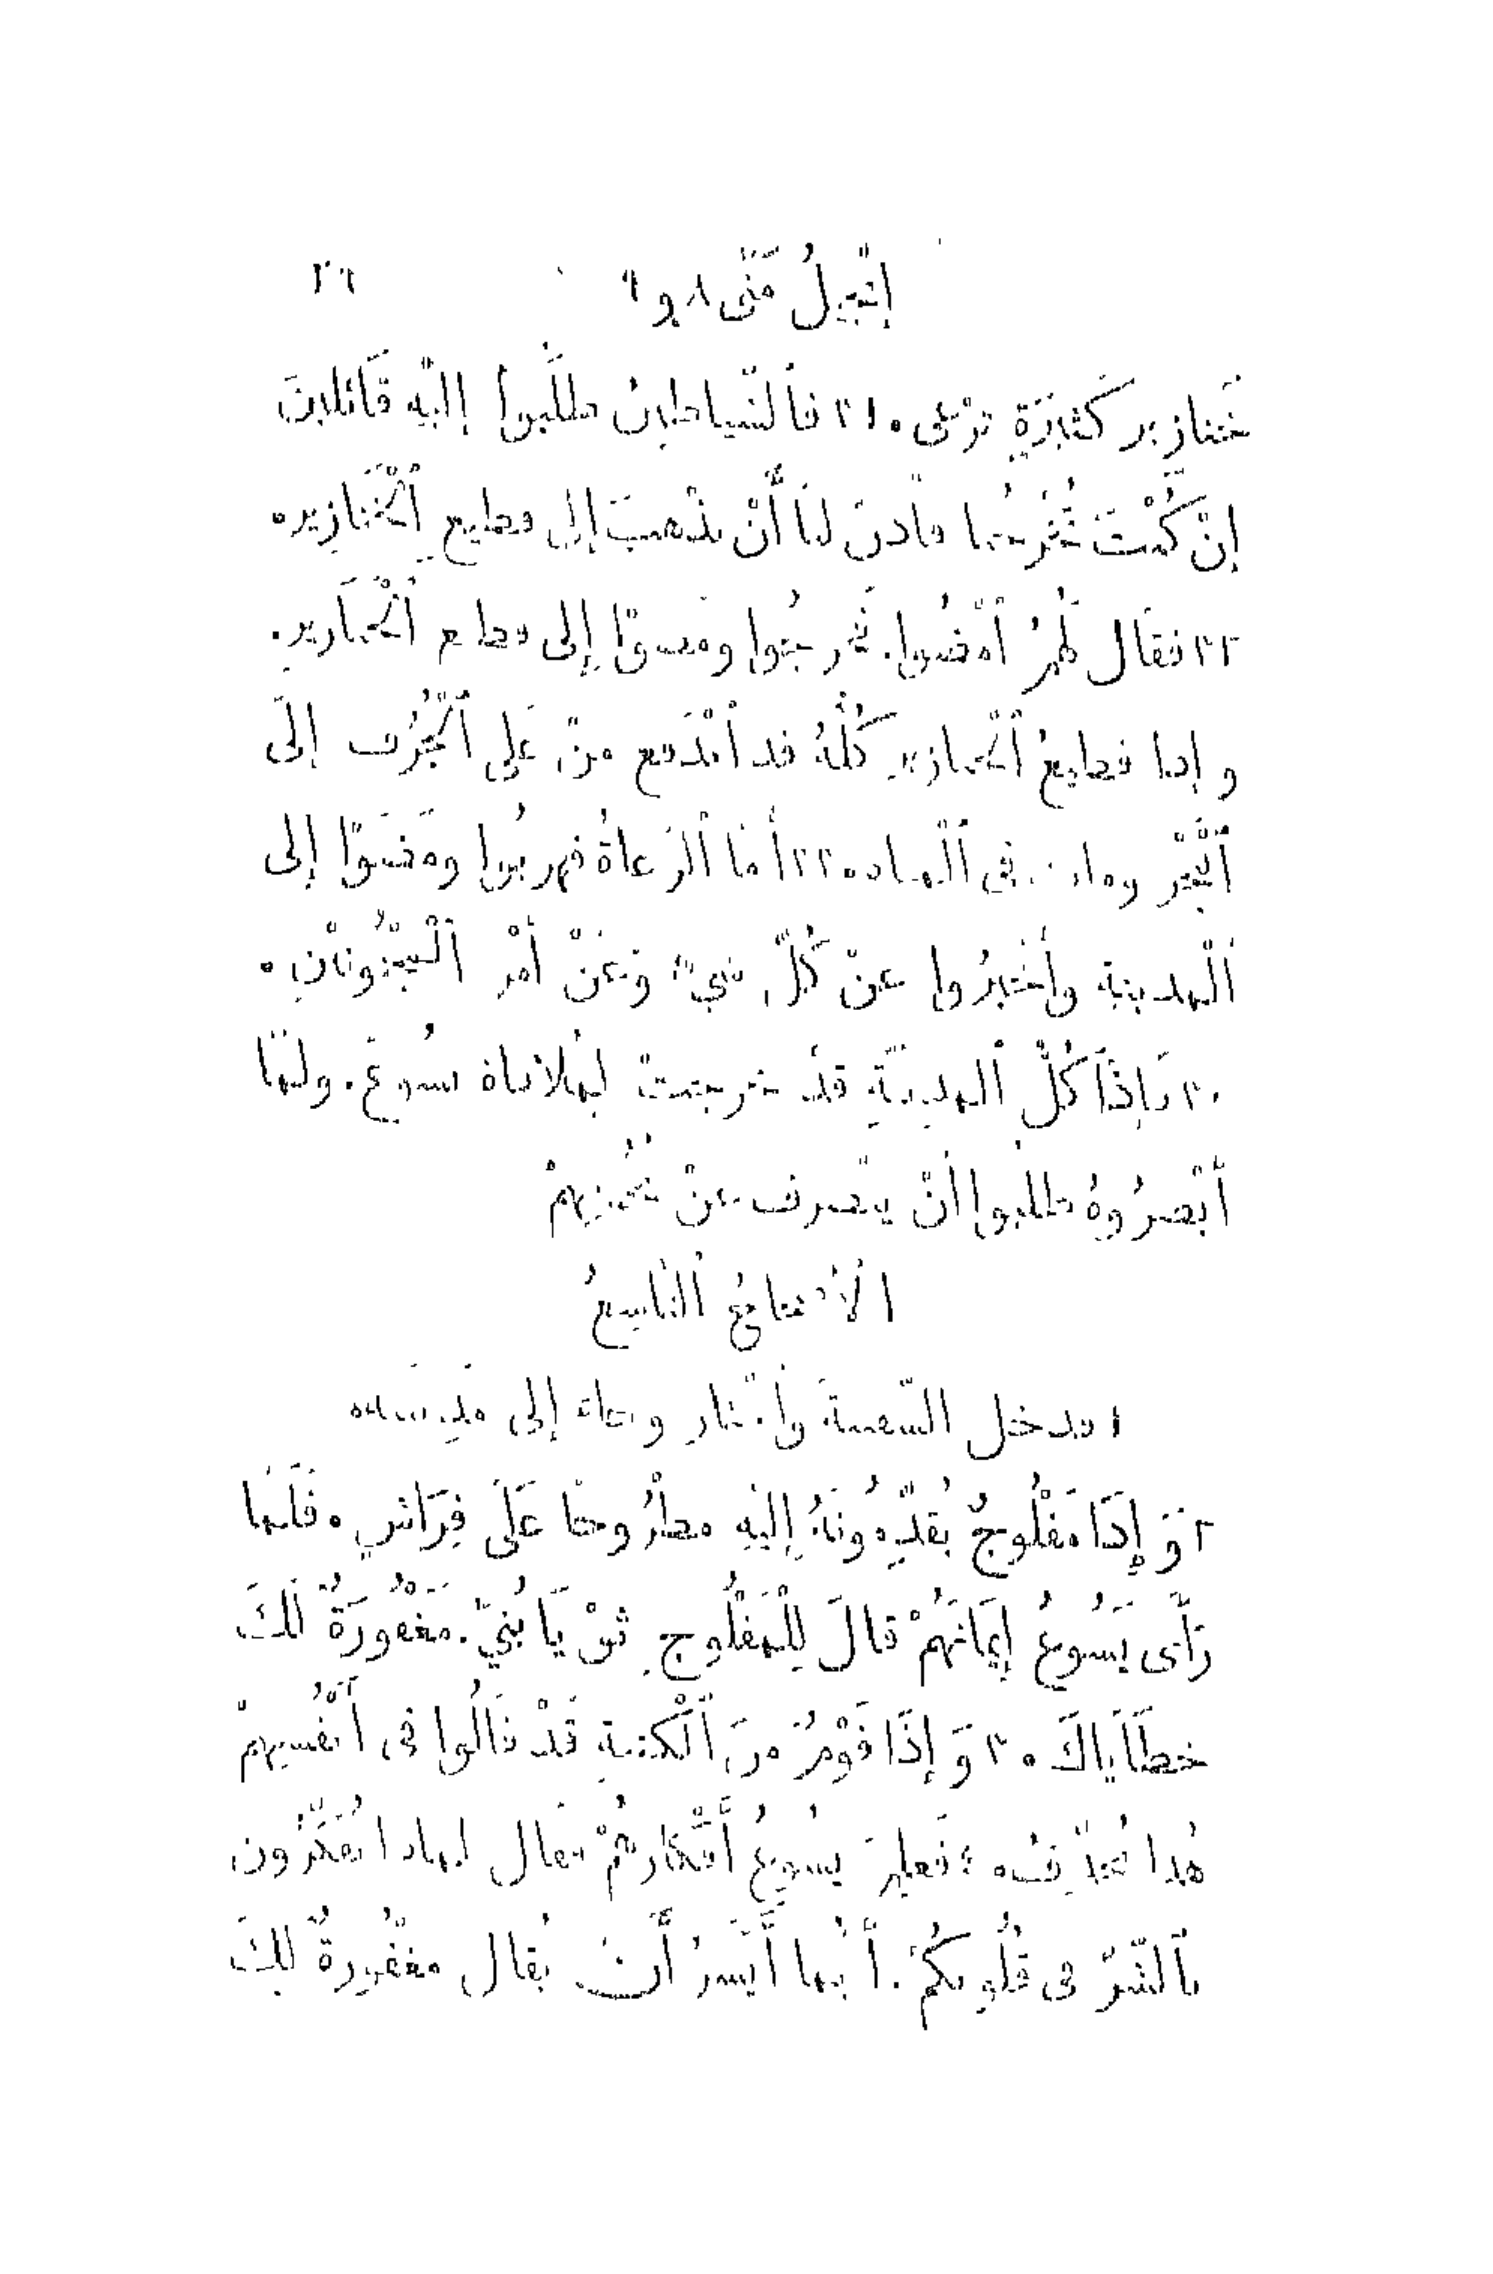 إنجيلُ مَتَّى ٨ و ٩ ٢٩
خنازير كَثيرَةٍ ترْعى ٠ ٣١ فٱلشّياطينُ طلَبوا إليْهِ قَائلينَ
إنْ كُنْتَ تُخْرِجُنا فأذنْ لنا أَنْ نذْهبَ إلى قطيعِ ٱلْخَنَازِيرِ ٠
٣٢ فقَال لَهُمُ ٱمْضُوا. فَخرجُوا ومَضوْا إلى قطيع ٱلْخنَازيرِ.
وإذا قطيعُ ٱلْخنازيرِ كُلُّهُ قد ٱنْدَفع منْ عَلى ٱلْجُرُف إلَى
ٱلْبَحْر ومات في ٱلْمياه ٠ ٣٣ أمَّا ٱلرّعاةُ فهربُوا ومَضَوْا إلى
ٱلْمدينة وأخْبرُوا عنْ كُلِّ شيءٍ وَعَنْ أمْرِ ٱلْمجْنُونَيْنِ ٠
٣٤ وَإذَا كُلُّ ٱلْمدينَةِ قدْ خرجتْ لِمُلاقاة يسُوعَ. ولمّا
أَبْصرُوهُ طلبُوا أنْ ينْصرف عنْ تُخُومِهِمْ
الأصحاحُ ٱلتَّاسِعُ
١ فدخل السّفينةَ وٱجْتاز وجاء إلى مَدِينَتِه ٠
٢ وَإِذَا مَفْلُوجٌ يُقدِّمُونَهُ إِليْهِ مطْرُوحًا عَلَى فِرَاشٍ ٠ فَلَمَّا
رَأَى يَسُوعُ إِيمَانَهُمْ قالَ لِلْمَفْلُوجِ ثقْ يَا بُنيَّ. مَغْفُورَةٌ لَكَ
خطَايَاكَ ٠ ٣ وَإِذَا قَوْمٌ منَ ٱلْكتبةِ قَدْ قَالُوا في أَنْفُسِهِمْ
هٰذا يُجدِّفُ ٠ ٤ فَعلِمَ يسُوعُ أَفْكارهُمْ فقَال لماذا تُفَكِّرُون
بٱلشّرّ في قُلُوبِكُمْ. ٥ أَيُّما أَيْسَرُ أَنْ يُقال مغْفُورةٌ لكَ